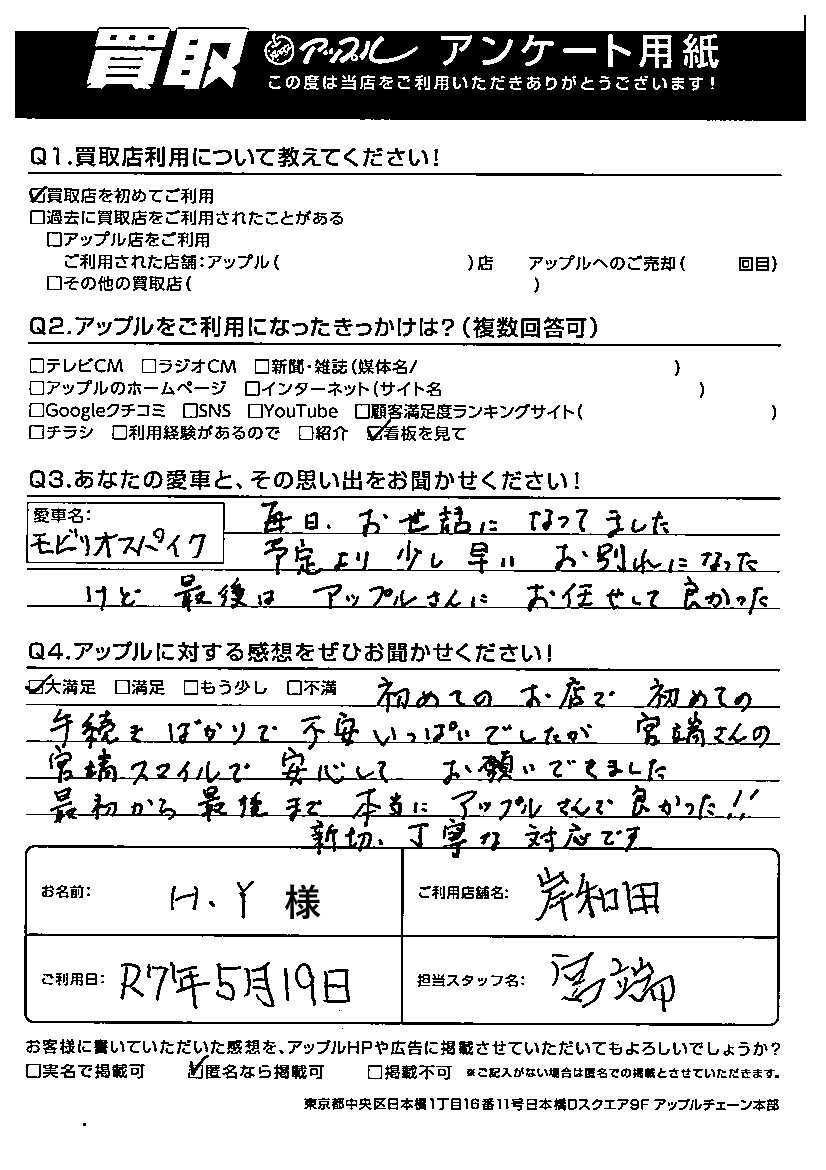 買取 アップル アンケート用紙
この度は当店をご利用いただきありがとうございます!
Q1.買取店利用について教えてください!
☑買取店を初めてご利用
□過去に買取店をご利用されたことがある
□アップル店をご利用
ご利用された店舗:アップル( )店 アップルへのご売却( 回目)
□その他の買取店( )
Q2.アップルをご利用になったきっかけは?(複数回答可)
□テレビCM □ラジオCM □新聞・雑誌(媒体名/ )
□アップルのホームページ □インターネット(サイト名 )
□Googleクチコミ □SNS □YouTube □顧客満足度ランキングサイト( )
□チラシ □利用経験があるので □紹介 ☑看板を見て
Q3.あなたの愛車と、その思い出をお聞かせください!
愛車名:
モビリオスパイク
毎日、お世話になってました
予定より少し早い お別れになった
けど 最後は アップルさんに お任せして良かった
Q4.アップルに対する感想をぜひお聞かせください!
☑大満足 □満足 □もう少し □不満 初めてのお店で 初めての
手続きばかりで不安いっぱいでしたが 宮端さんの
宮端スマイルで 安心して お願いできました
最初から最後まで 本当に アップルさんで良かった!!
新切、丁寧な対応です
お名前: H.Y 様 ご利用店舗名: 岸和田
ご利用日: R7年5月19日 担当スタッフ名: 宮端
お客様に書いていただいた感想を、アップルHPや広告に掲載させていただいてもよろしいでしょうか?
□実名で掲載可 ☑匿名なら掲載可 □掲載不可 ※ご記入がない場合は匿名での掲載とさせていただきます。
東京都中央区日本橋1丁目16番11号日本橋Dスクエア9F アップルチェーン本部